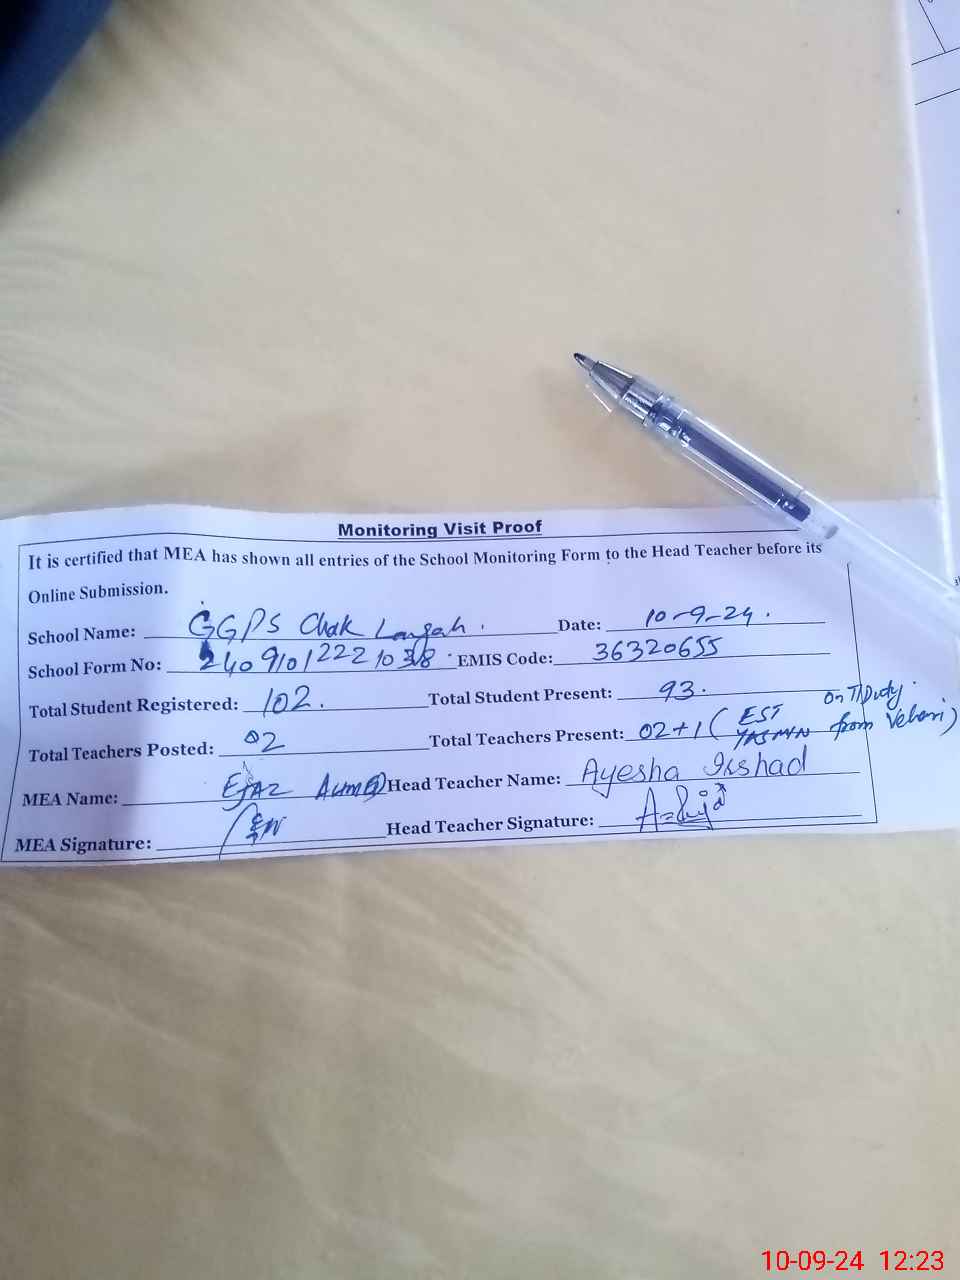 Monitoring Visit Proof
It is certified that MEA has shown all entries of the School Monitoring Form to the Head Teacher before its
Online Submission.
School Name: GGPS Chak Langah. Date: 10-9-24.
School Form No: EMIS Code: 36320655
Total Student Registered: 102. Total Student Present: 93.
Total Teachers Posted: 02 Total Teachers Present: 02+1 (EST YASMIN on T/Duty from Vehari)
MEA Name: Ejaz Ahmed Head Teacher Name: Ayesha Irshad
MEA Signature: Head Teacher Signature:
10-09-24 12:23